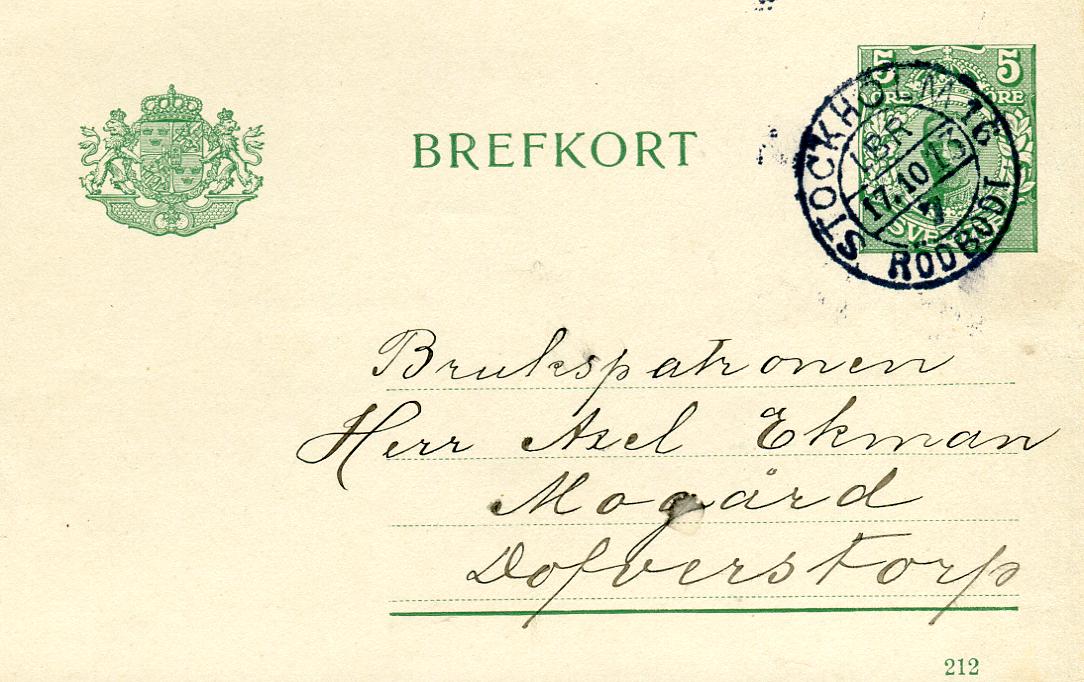 5 5
ÖRE ÖRE
SVERIGE
STOCKHOLM 16
LBR
17.10.13
7
RÖDBODT
BREFKORT
Brukspatronen
Herr Axel Ekman
Mogård
Dofverstorp
212